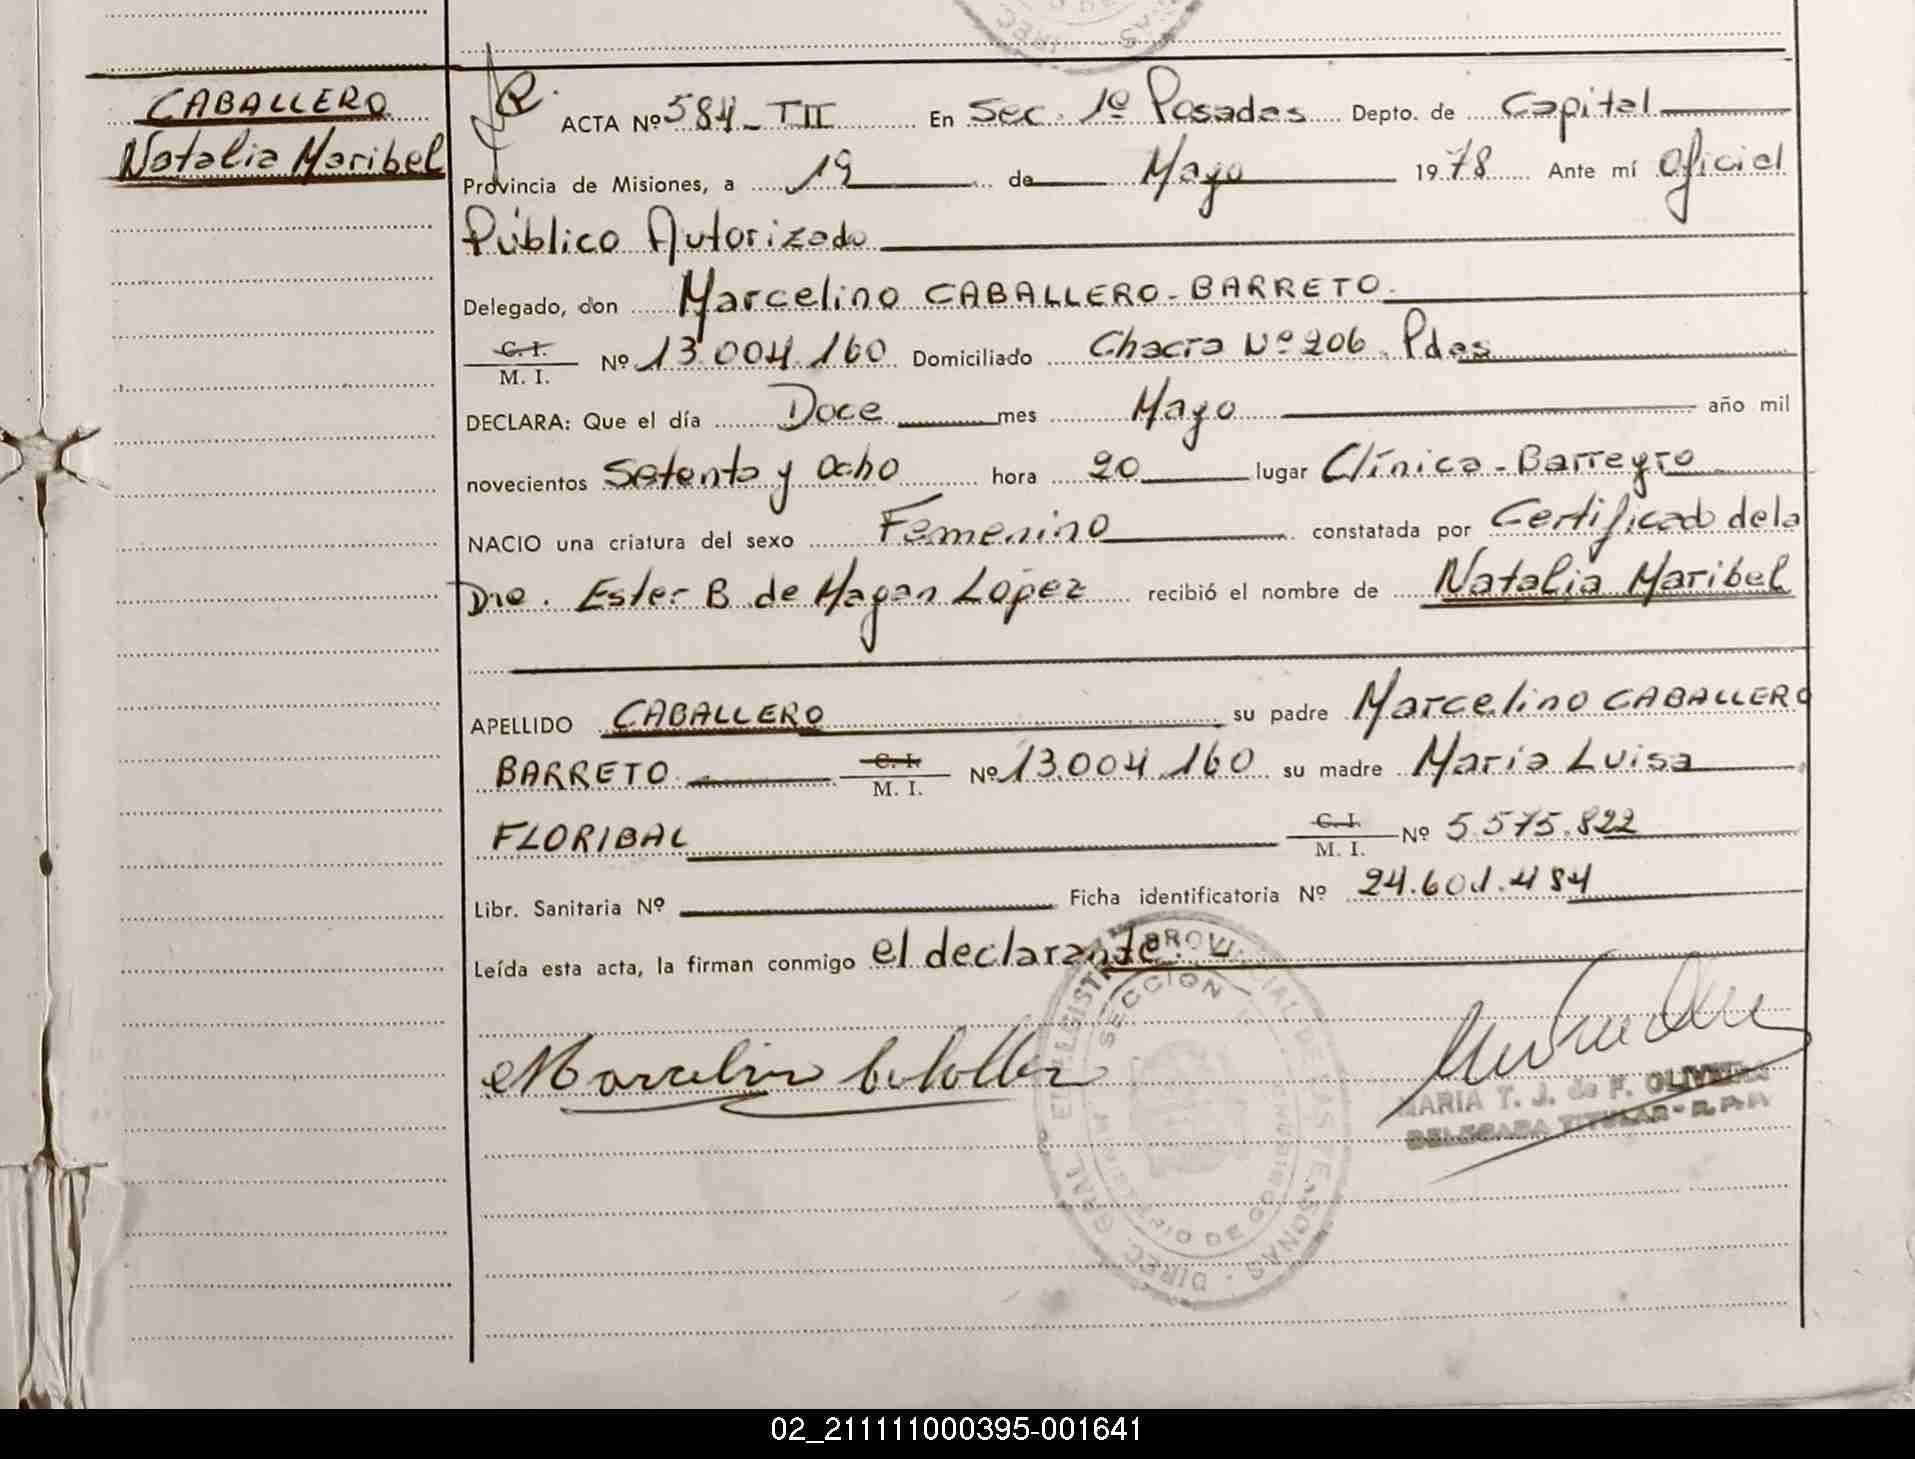 CABALLERO
Natalia Maribel
ACTA Nº 584 - TII En Sec. 1º Posadas Depto. de Capital
Provincia de Misiones, a 19 de Mayo 1978 Ante mí Oficial
Público Autorizado
Delegado, don Marcelino CABALLERO - BARRETO.
C. I.
M. I. Nº 13.004.160 Domiciliado Chacra Nº 206. Pdas
DECLARA: Que el día Doce mes Mayo año mil
novecientos Setenta y Ocho hora 20 lugar Clínica - Barreyro
NACIO una criatura del sexo Femenino constatada por Certificado de la
Dra. Ester B. de Magan López recibió el nombre de Natalia Maribel
APELLIDO CABALLERO su padre Marcelino CABALLERO
BARRETO. C. I. M. I. Nº 13.004.160 su madre María Luisa
FLORIBAL C. I. M. I. Nº 5.575.822
Libr. Sanitaria Nº Ficha identificatoria Nº 24.601.484
Leída esta acta, la firman conmigo el declarante.
SECCION
MARIA T. J. de F. OLIVEIRA
DELEGADA TITULAR - R.P.P.
02_211111000395-001641